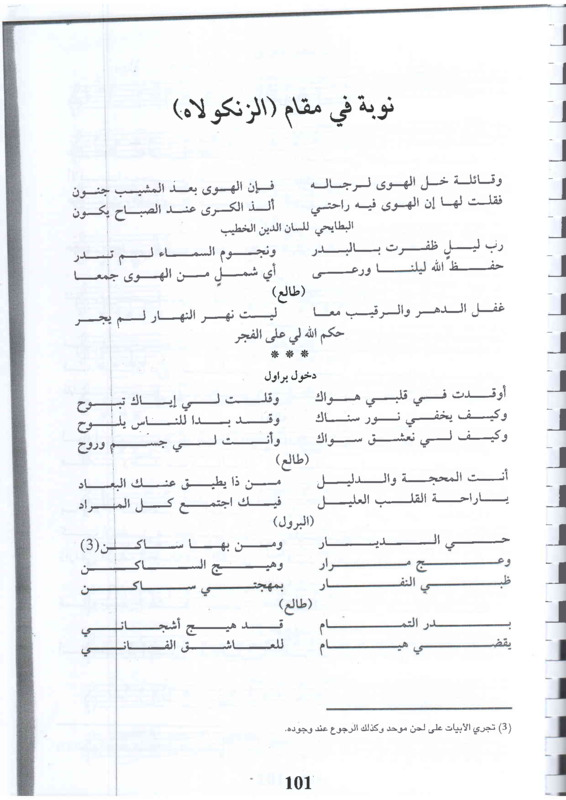 نوبة في مقام (الزنكولاه)
وقائلة خل الهوى لرجاله فإن الهوى بعد المشيب جنون
فقلت لها إن الهوى فيه راحتي ألذ الكرى عند الصباح يكون
البطايحي للسان الدين الخطيب
رب ليلٍ ظفرت بالبدر ونجوم السماء لم تدر
حفظ الله ليلنا ورعى أي شملٍ من الهوى جمعا
(طالع)
غفل الدهر والرقيب معا ليت نهر النهار لم يجر
حكم الله لي على الفجر
* * *
دخول براول
أوقدت في قلبي هواك وقلت لي إياك تبوح
وكيف يخفي نور سناك وقد بدا للناس يلوح
وكيف لي نعشق سواك وأنت لي جسم وروح
(طالع)
أنت المحجة والدليل من ذا يطيق عنك البعاد
ياراحة القلب العليل فيك اجتمع كل المراد
(البرول)
حي الديار ومن بها ساكن(3)
وعج مرار وهيج الساكن
ظبي النفار بمهجتي ساكن
(طالع)
بدر التمام قد هيج أشجاني
يقضي هيام للعاشق الفاني
(3) تجري الأبيات على لحن موحد وكذلك الرجوع عند وجوده.
101